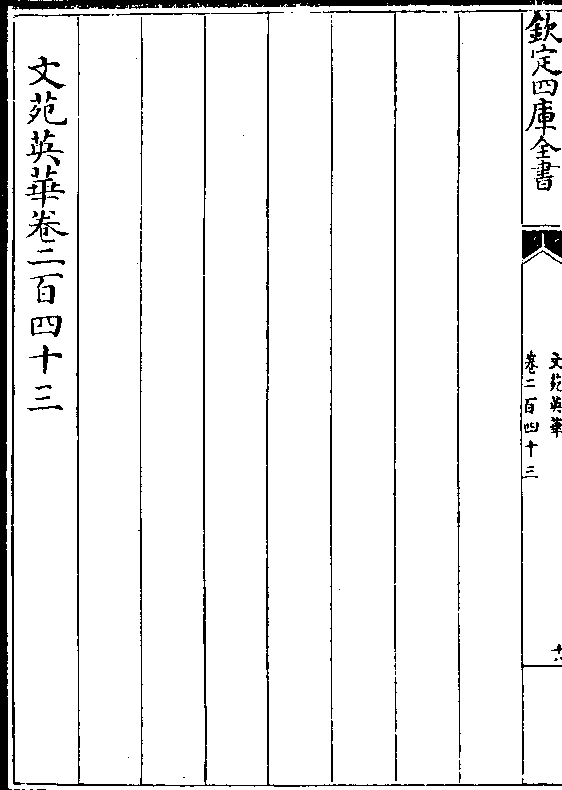 欽定四庫全書
文苑英華
卷二百四十三
文苑英華卷二百四十三